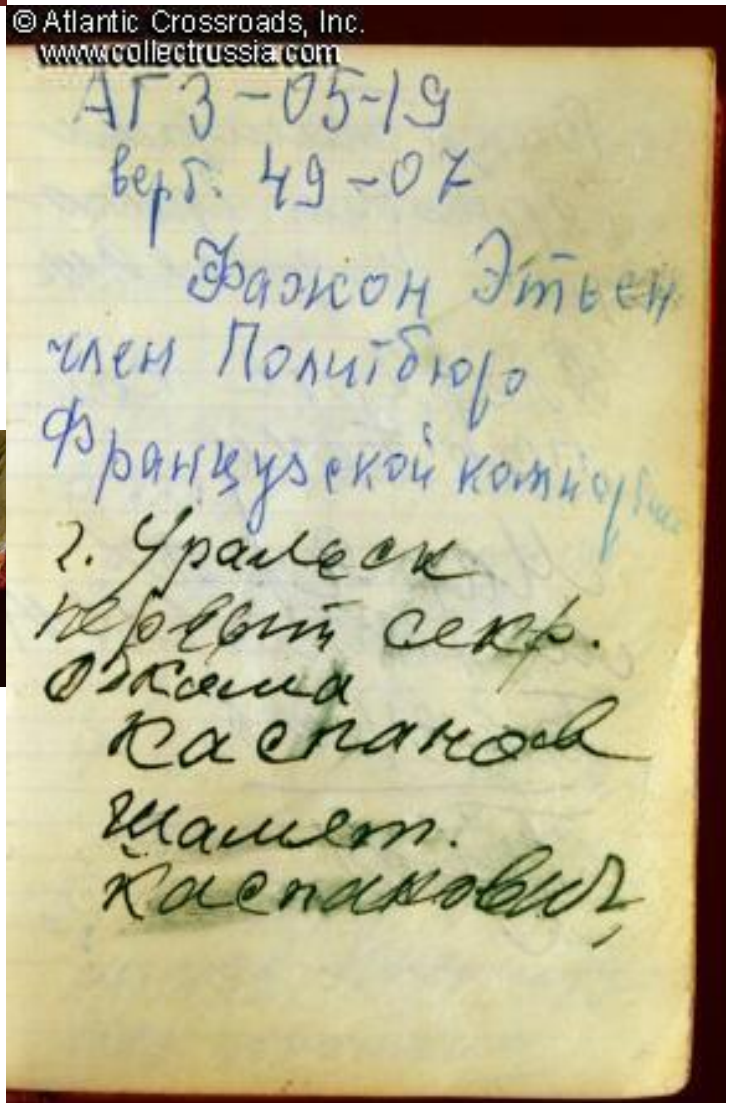 © Atlantic Crossroads, Inc.
www.collectrussia.com
АГЗ-05-19
верт. 49-07
Фажон Этьен
член Политбюро
Французской компартии
г. Уральск
первый секр.
обкома
Каспанов
Шамет.
Каспакович,